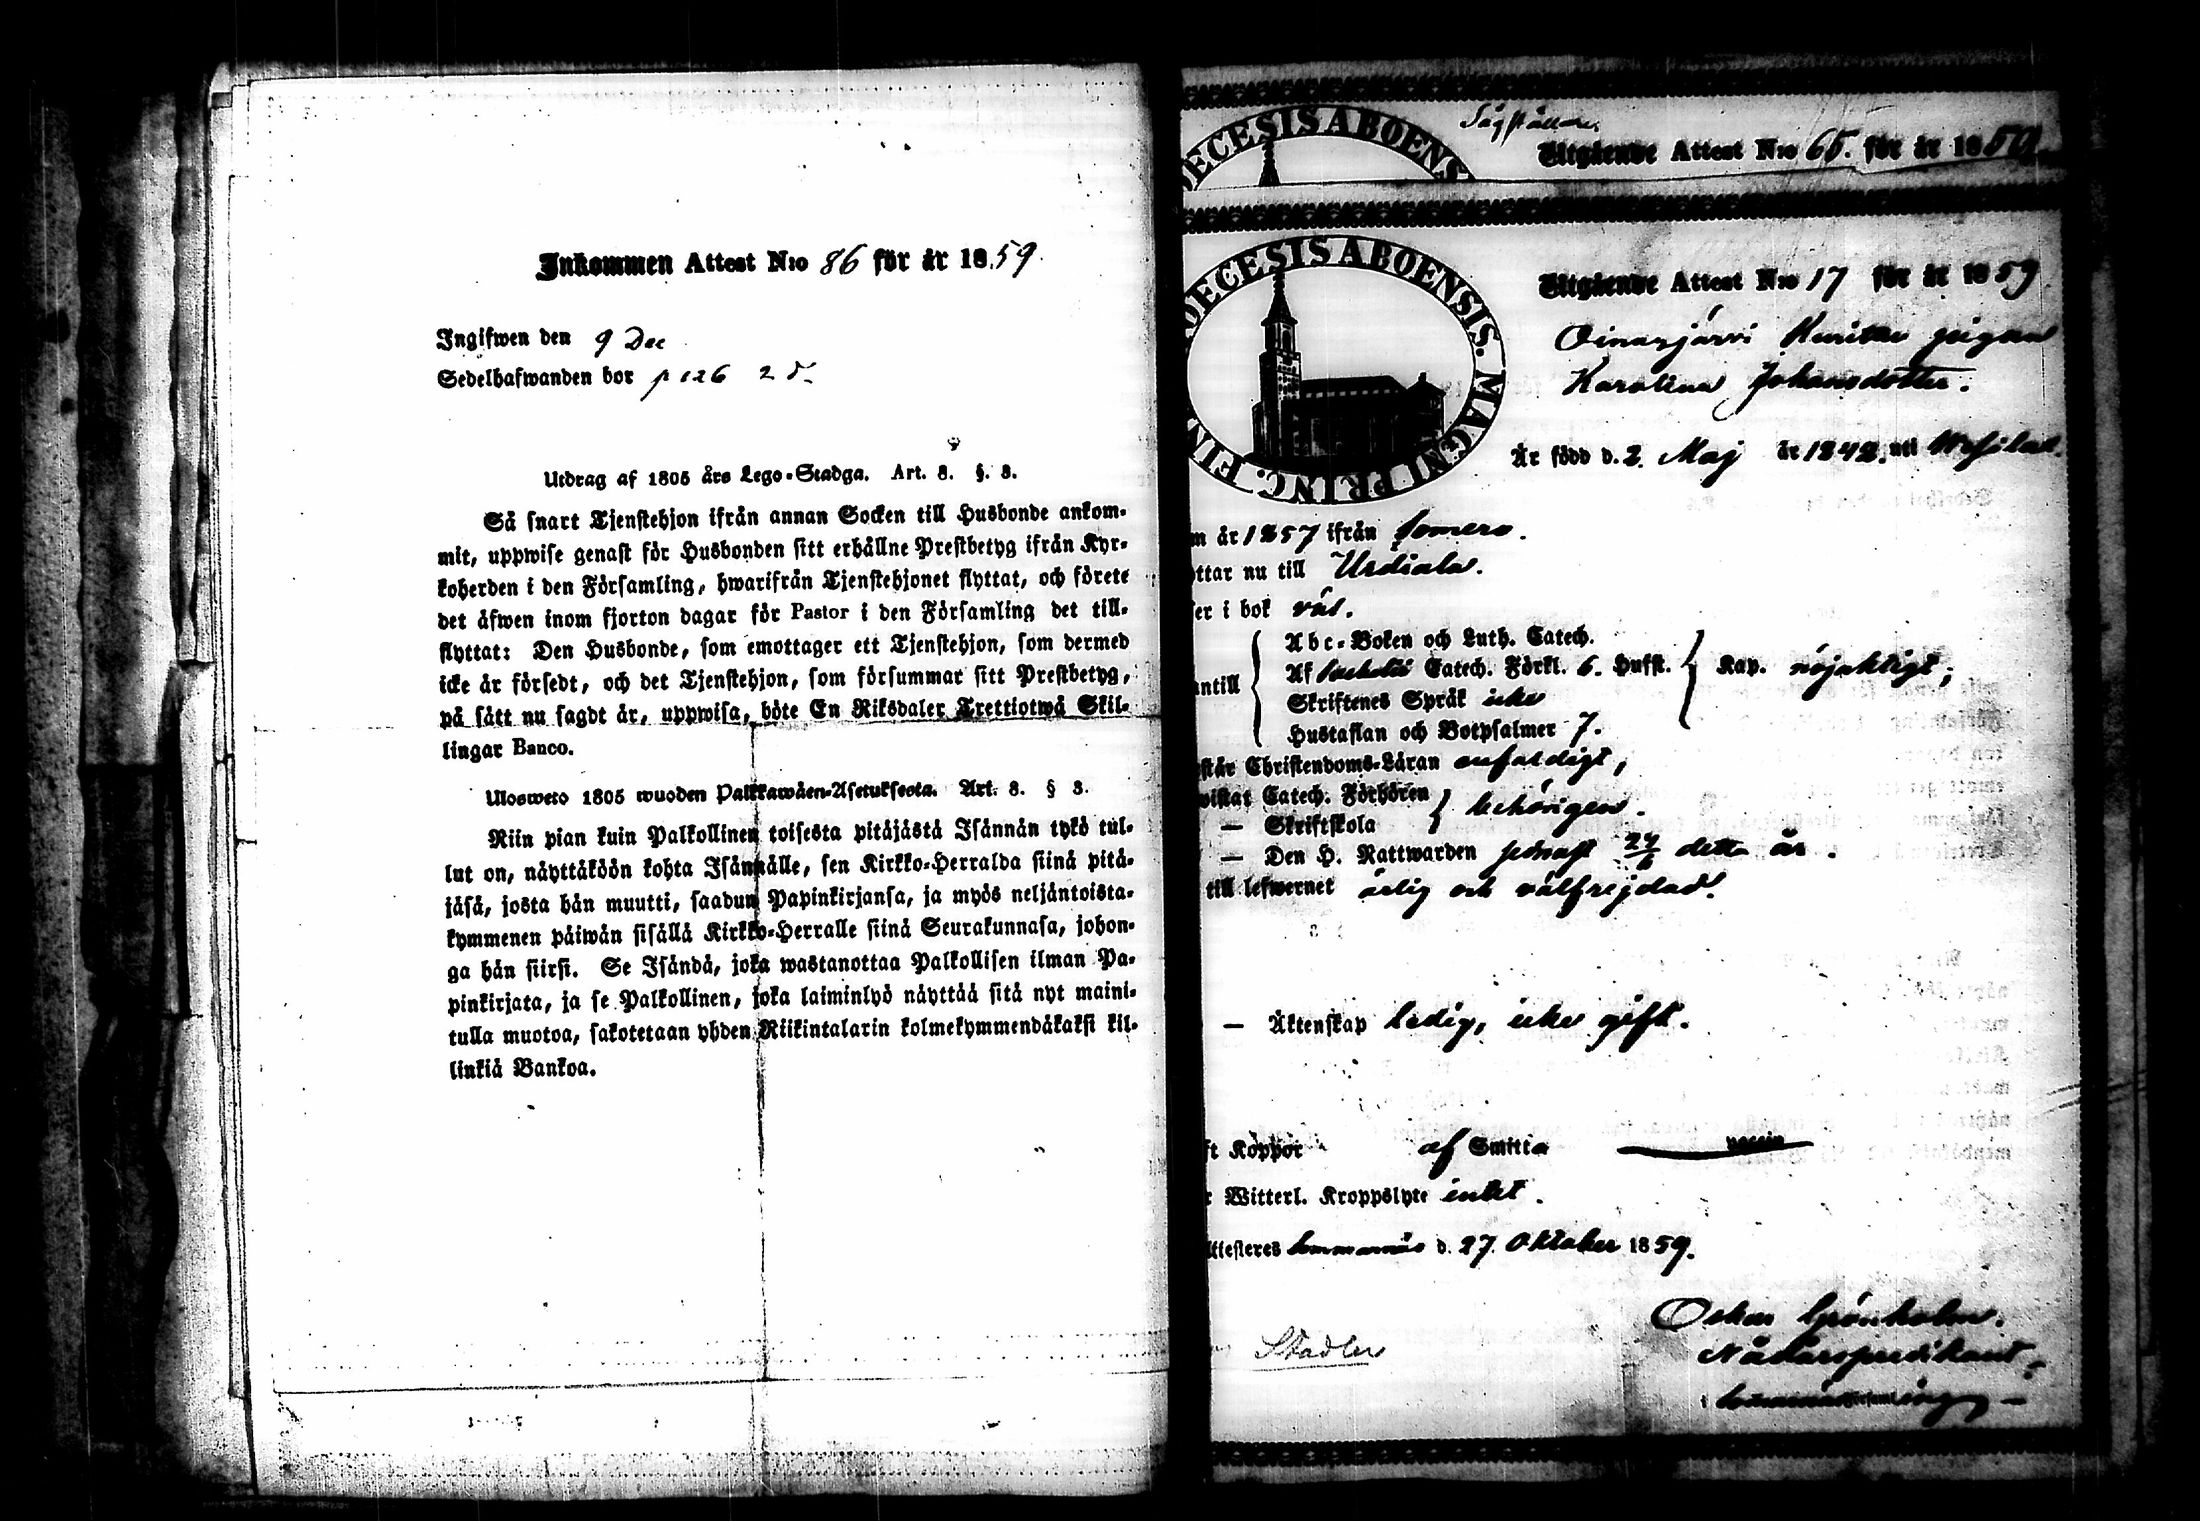 Inkommen Attest N:o 86 för år 1859.
Ingifwen den 9 Dec
Sedelhafwanden bor p 126 2 d.
Utdrag af 1805 års Lego-Stadga. Art. 8. §. 3.
Så snart Tjenstehjon ifrån annan Socken till Husbonde ankom-
mit, uppwise genast för Husbonden sitt erhållne Prestbetyg ifrån Kyr-
koherden i den Församling, hwarifrån Tjenstehjonet flyttat, och förete
det äfwen inom fjorton dagar för Pastor i den Församling det till-
flyttat: Den Husbonde, som emottager ett Tjenstehjon, som dermed
icke är försedt, och det Tjenstehjon, som försummar sitt Prestbetyg,
på sätt nu sagdt är, uppwisa, böte En Riksdaler Trettiotwå Skil-
lingar Banco.
Ulosweto 1805 wuoden Palkkawäen-Asetuksesta. Art. 8. § 3.
Niin pian kuin Palkollinen toisesta pitäjästä Isännän tykö tul-
lut on, näyttäköön kohta Isännälle, sen Kirkko-Herralda siinä pitä-
jäsä, josta hän muutti, saadun Papinkirjansa, ja myös neljäntoista-
kymmenen päiwän sisällä Kirkko-Herralle siinä Seurakunnasa, johon-
ga hän siirsi. Se Isändä, joka wastanottaa Palkollisen ilman Pa-
pinkirjata, ja se Palkollinen, joka laiminlyö näyttää sitä nyt maini-
tulla muotoa, sakotetaan yhden Riikintalarin kolmekymmendäkaksi kil-
linkiä Bankoa.
ECESIS ABOENS
Utgående Attest N:o 65. för år 1859.
OECESIS ABOENSIS. MAGNI PRINC. FIN
Utgående Attest N:o 17 för år 1859
Oinasjärvi Kurittu pigan
Karolina Johansdotter.
Är född d. 2 Maj år 1842. uti
m år 1857 ifrån Somero.
yttar nu till Urdiala.
ser i bok väl.
antill
Abc-Boken och Luth. Catech.
Af Catech. Förkl. 6. Hufst. Kap. nöjaktigt;
Skriftenes Språk icke
Hustaflan och Botpsalmer 7.
står Christendoms-Läran enfaldigt,
wistat Catech. Förhören
— Skriftskola behörigen.
— Den H. Nattwarden senast 24/6 detta år.
till lefwernet ärlig och välfrejdad.
— Äktenskap ledig, icke gift.
ft Koppor af Smitta vaccin
r Witterl. Kroppslyte intet.
ttesteres Sommarnäs d. 27. Oktober 1859.
Oskar Grönholm.
Stadler
Nådårspredikant
i Församling